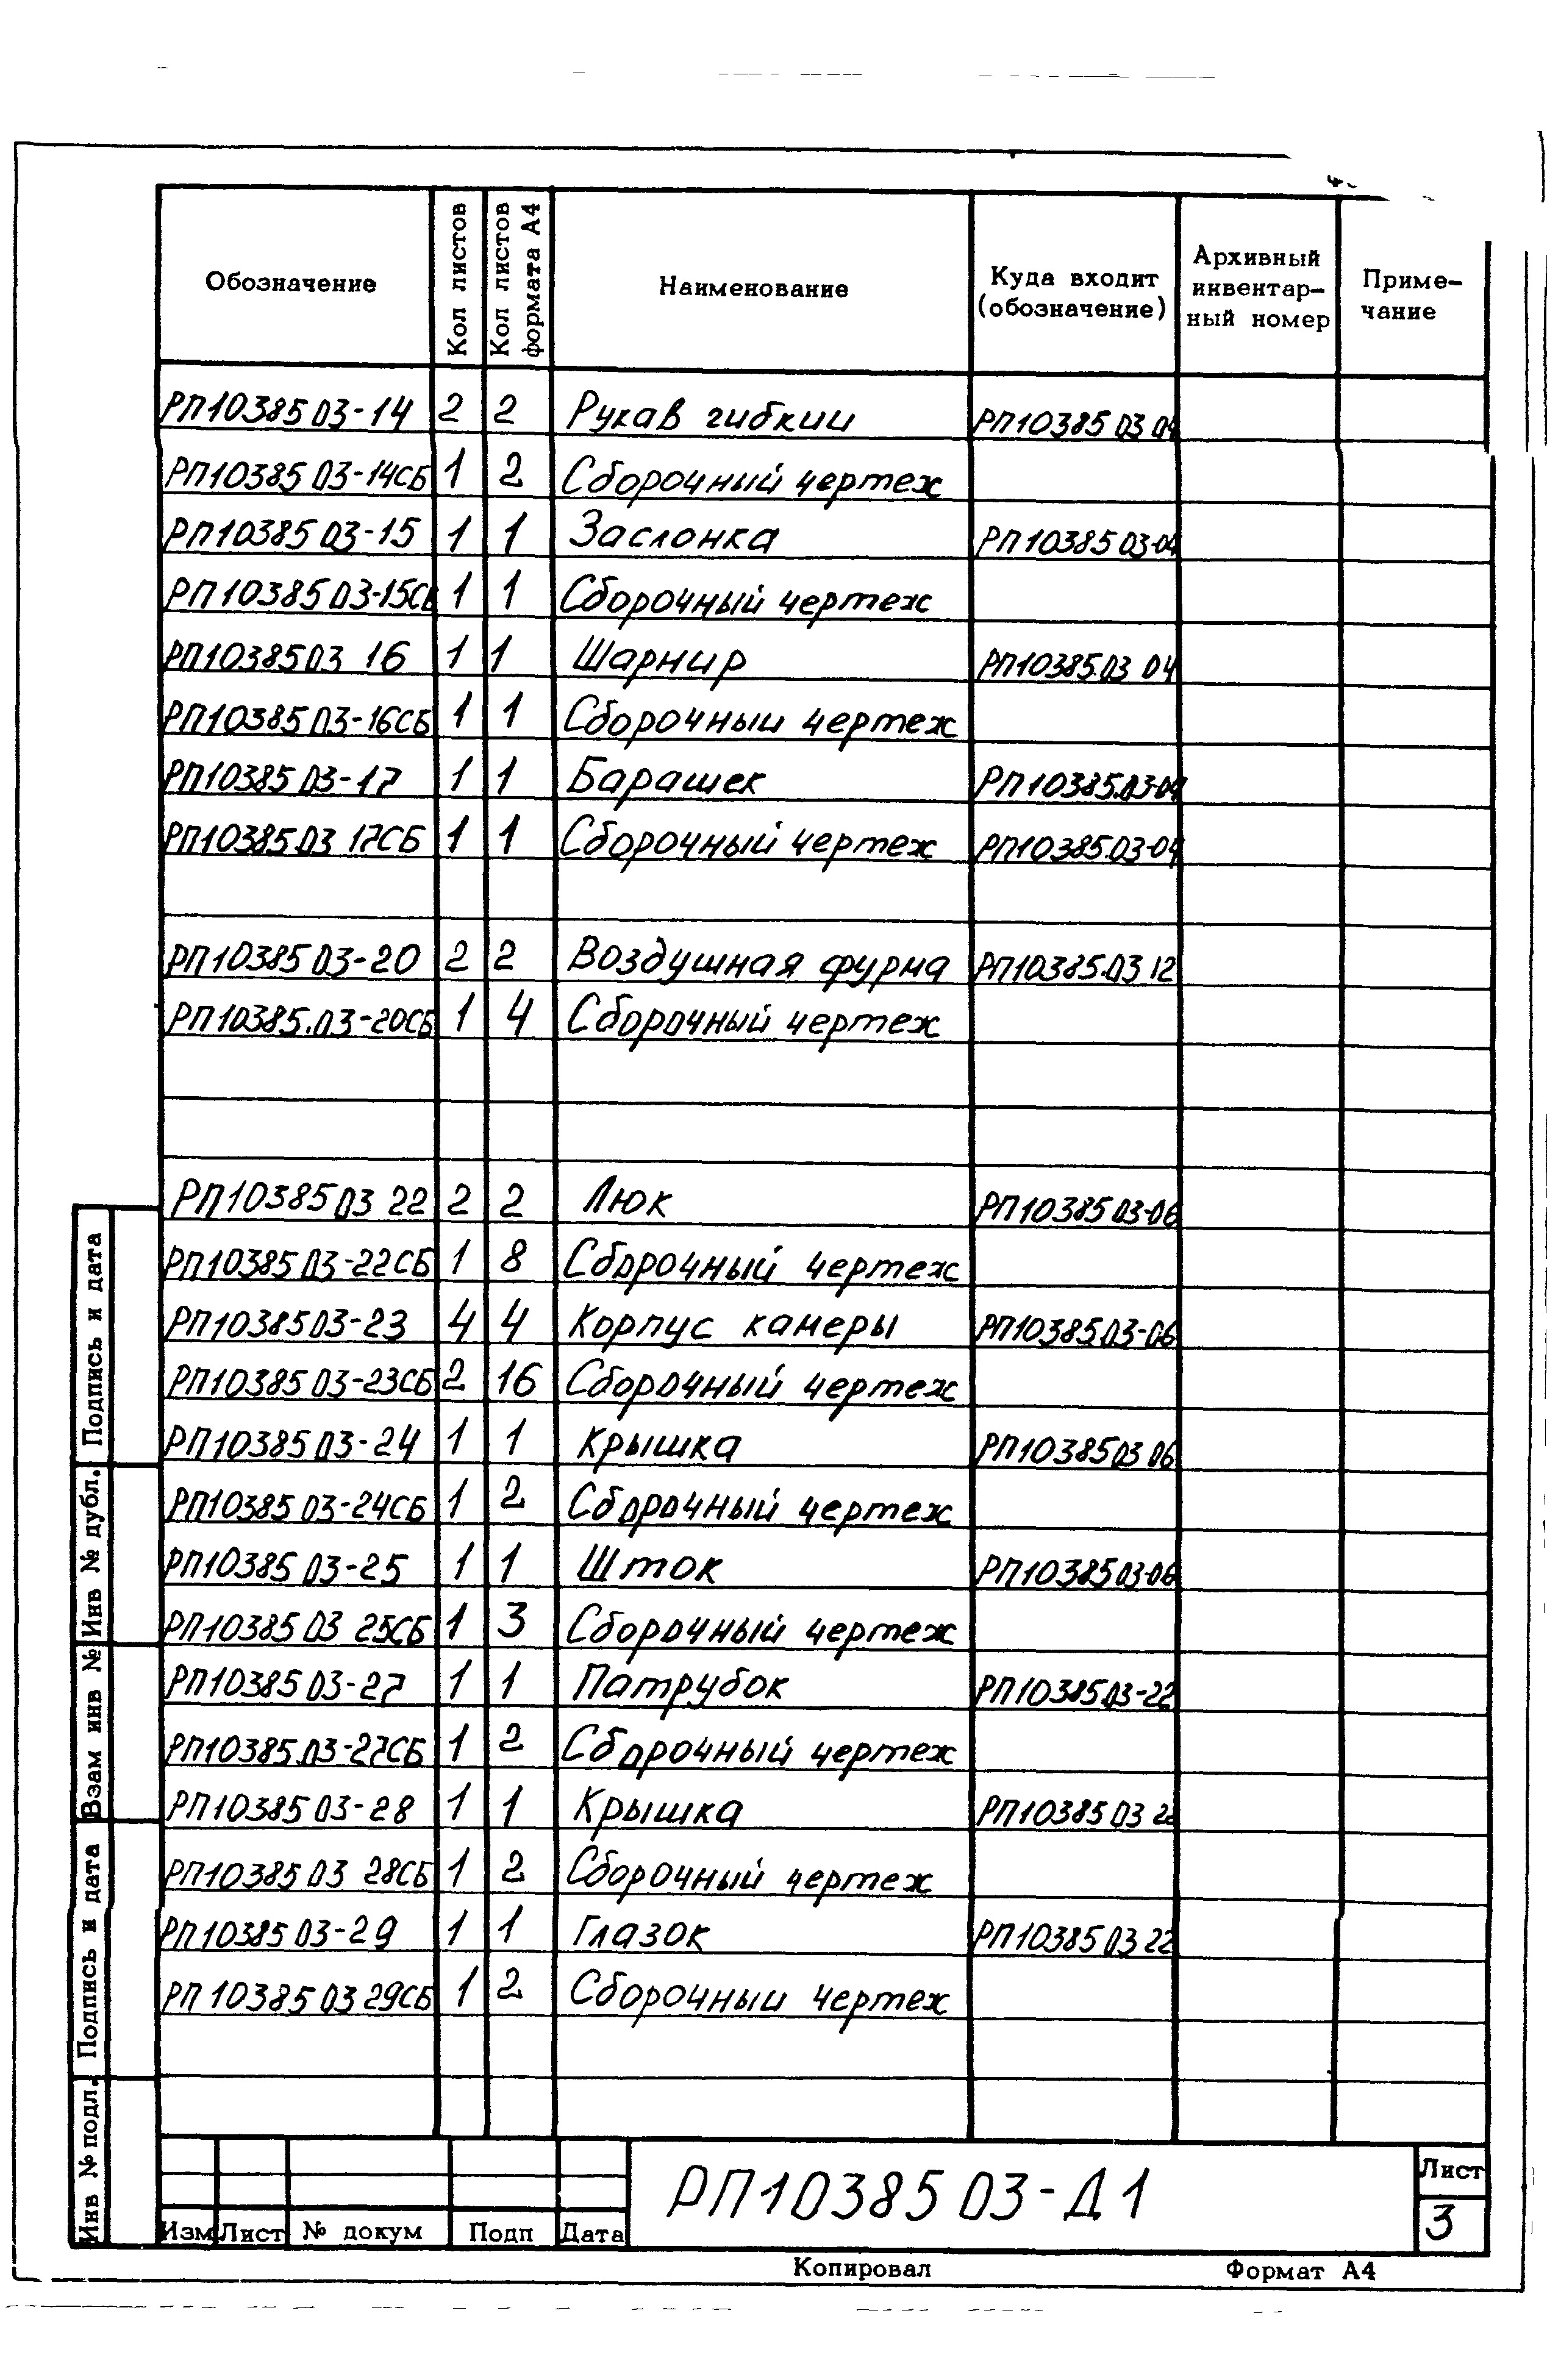 Обозначение | Кол листов | Кол листов формата А4 | Наименование | Куда входит (обозначение) | Архивный инвентар-ный номер | Приме-чание
РП10385 03-14 2 2 Рукав гибкии РП10385 03 04
РП10385 03-14СБ 1 2 Сборочный чертеж
РП10385 03-15 1 1 Заслонка РП10385 03-04
РП10385 03-15СБ 1 1 Сборочный чертеж
РП1038503 16 1 1 Шарнир РП10385.03 04
РП10385 03-16СБ 1 1 Сборочныи чертеж
РП10385 03-17 1 1 Барашек РП10385.03-04
РП10385 03 17СБ 1 1 Сборочный чертеж РП10385.03-04
РП10385 03-20 2 2 Воздушная фурма РП10385.03 12
РП10385.03-20СБ 1 4 Сборочный чертеж
РП10385 03 22 2 2 Люк РП10385 03-06
РП10385 03-22СБ 1 8 Сборочный чертеж
РП1038503-23 4 4 Корпус камеры РП10385 03-06
РП10385 03-23СБ 2 16 Сборочный чертеж
РП10385 03-24 1 1 Крышка РП10385 03 06
РП10385 03-24СБ 1 2 Сборочный чертеж
РП10385 03-25 1 1 Шток РП10385 03-06
РП10385 03 25СБ 1 3 Сборочный чертеж
РП10385 03-27 1 1 Патрубок РП10385 03-22
РП10385.03-27СБ 1 2 Сборочный чертеж
РП10385 03-28 1 1 Крышка РП10385 03 22
РП10385 03 28СБ 1 2 Сборочный чертеж
РП10385 03-29 1 1 Глазок РП10385 03 22
РП10385 03 29СБ 1 2 Сборочныи чертеж
Подпись и дата
Инв № дубл.
Взам инв №
Подпись и дата
Инв № подл.
РП10385 03-Д1
Лист
3
Изм Лист № докум Подп Дата
Копировал Формат А4